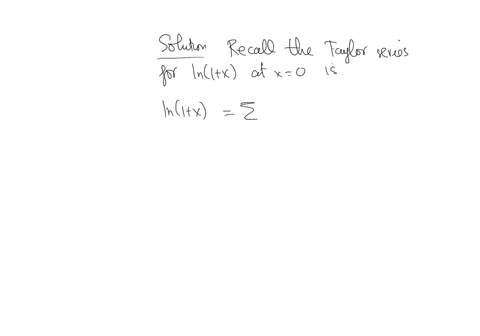 Solution Recall the Taylor series
for ln(1+x) at x=0 is
ln(1+x) = Σ